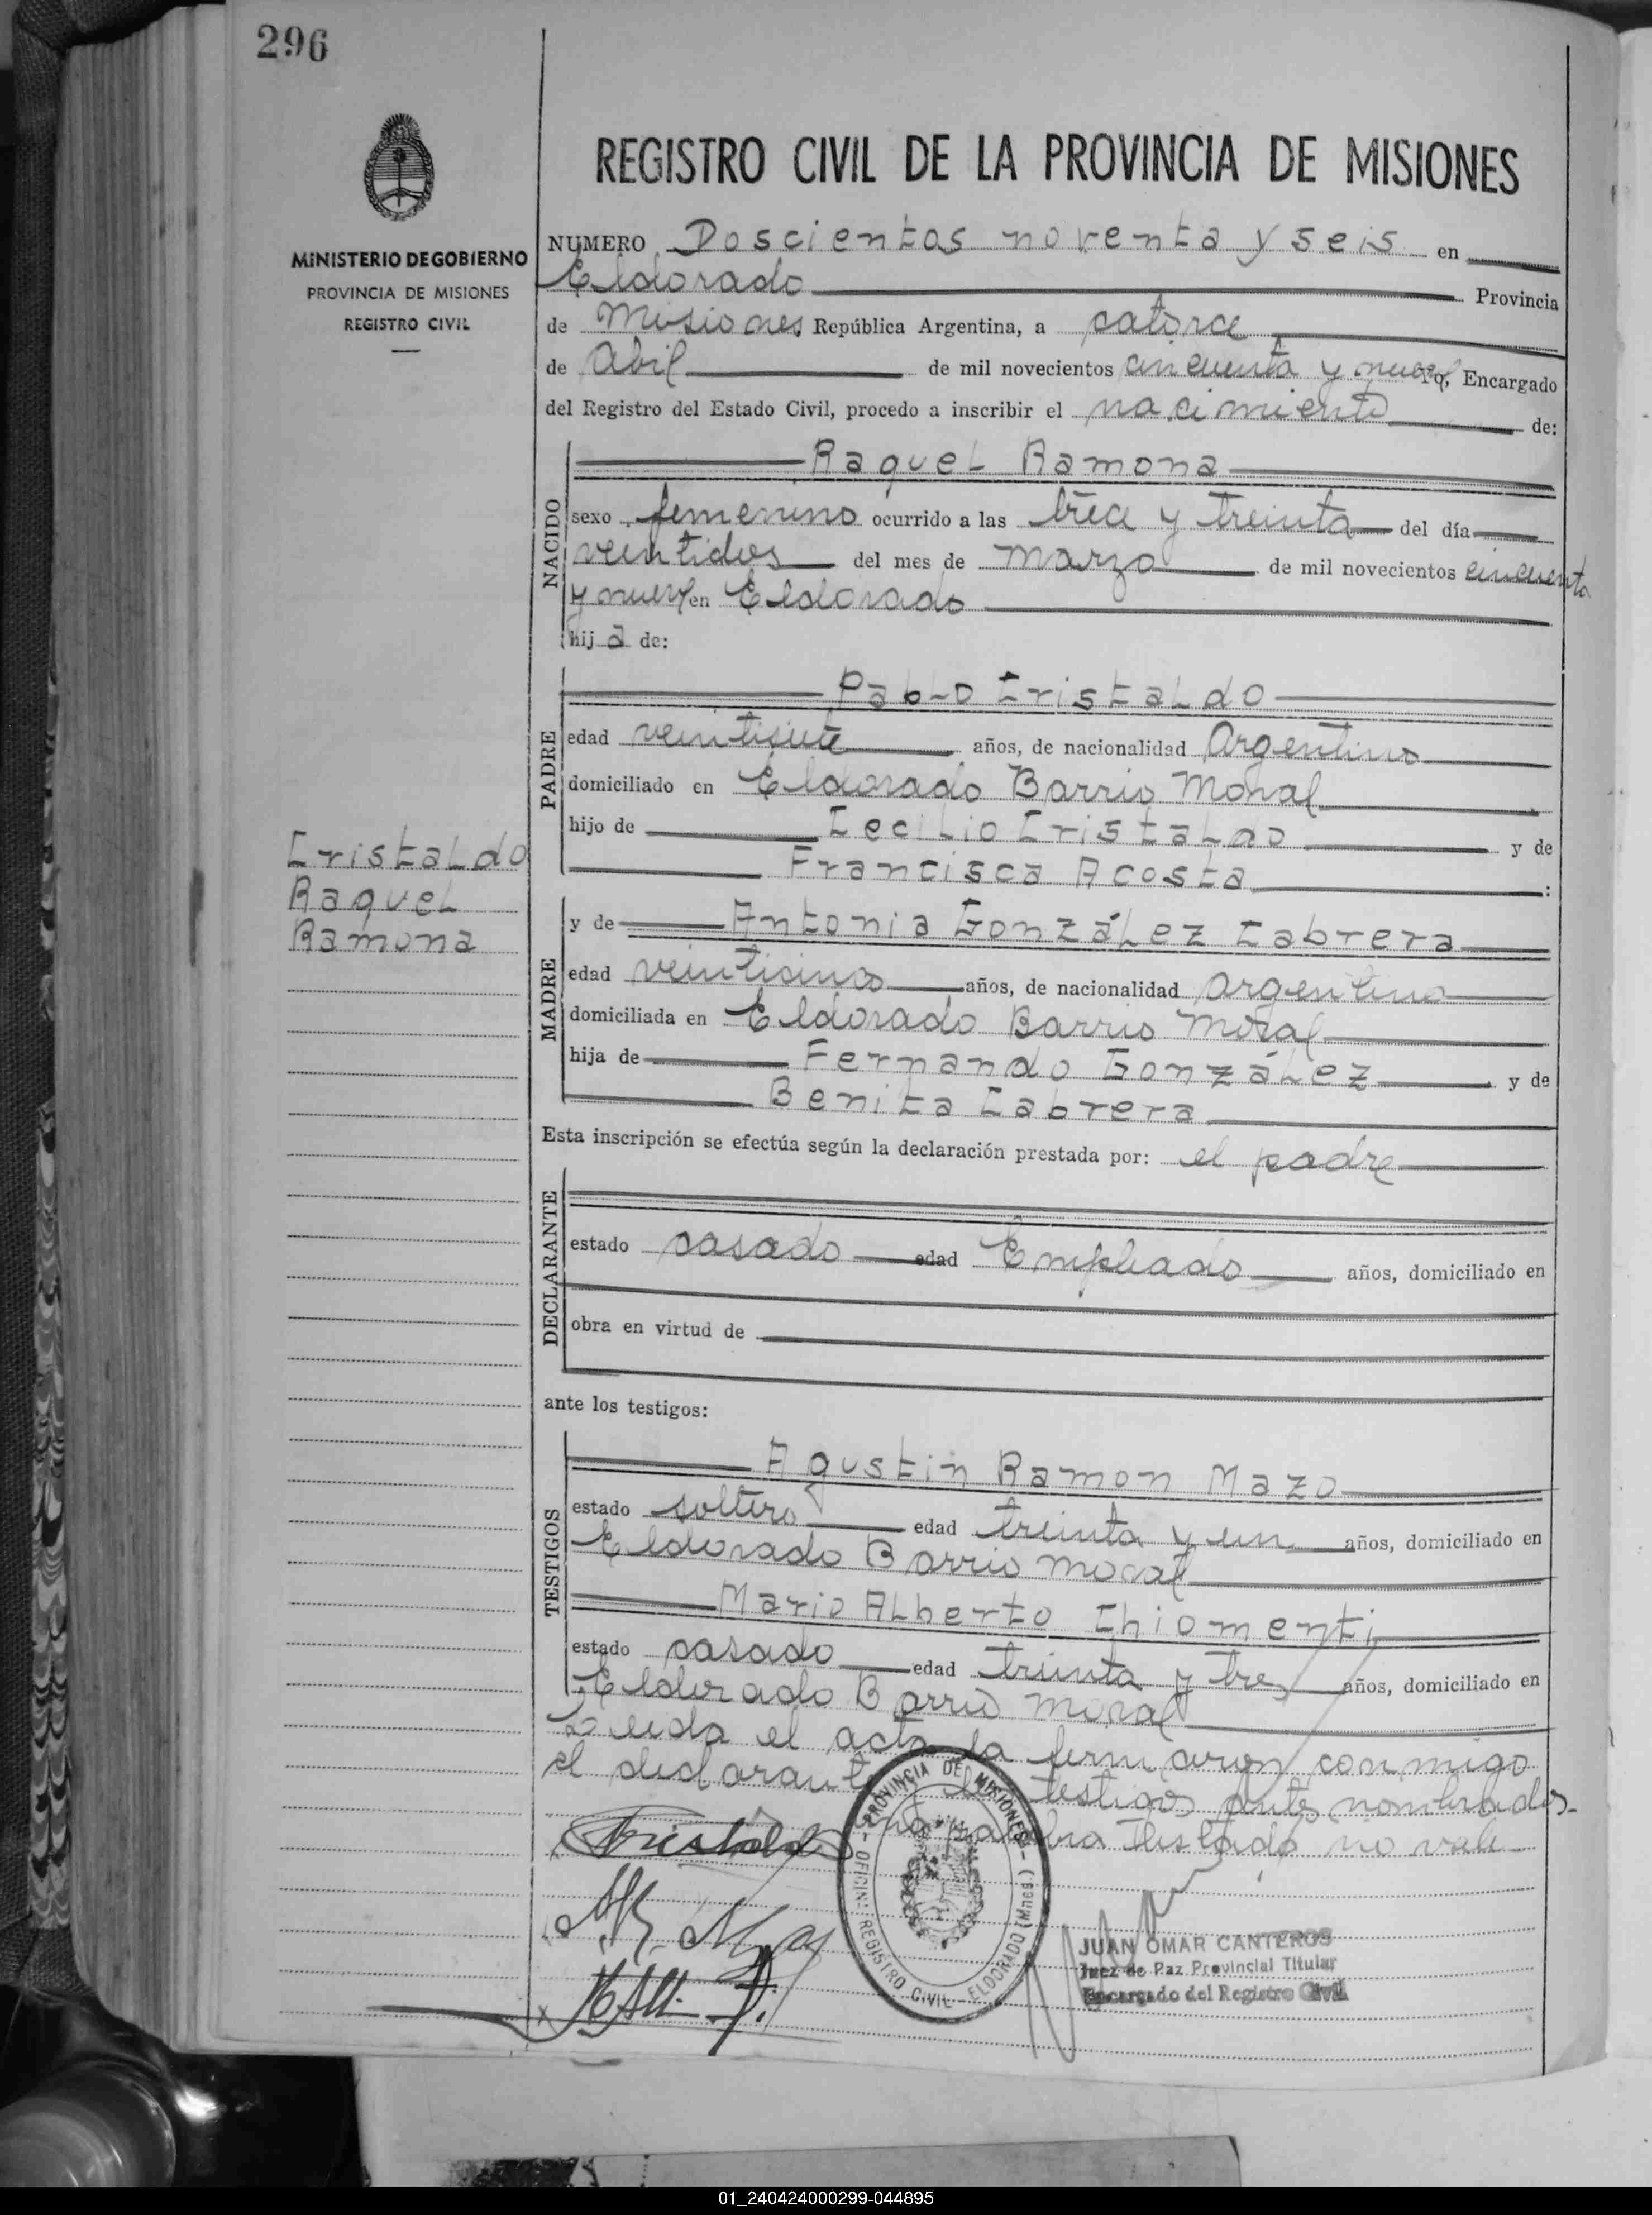 296
REGISTRO CIVIL DE LA PROVINCIA DE MISIONES
MINISTERIO DE GOBIERNO
PROVINCIA DE MISIONES
REGISTRO CIVIL
NUMERO Doscientos noventa y seis en
Eldorado Provincia
de Misiones República Argentina, a catorce
de Abril de mil novecientos cincuenta y nueve Yo, Encargado
del Registro del Estado Civil, procedo a inscribir el nacimiento de:
NACIDO
Raquel Ramona
sexo femenino ocurrido a las trece y treinta del día
veintidos del mes de marzo de mil novecientos cincuenta
y nueve en Eldorado
hij a de:
PADRE
Pablo Cristaldo
edad veintisiete años, de nacionalidad Argentino
domiciliado en Eldorado Barrio Moral
hijo de Cecilio Cristaldo y de
Francisca Acosta :
Cristaldo
Raquel
Ramona
MADRE
y de Antonia González Cabrera
edad veinticinco años, de nacionalidad argentina
domiciliada en Eldorado Barrio Moral
hija de Fernando González y de
Benita Cabrera
Esta inscripción se efectúa según la declaración prestada por: el padre
DECLARANTE
estado casado edad Empleado años, domiciliado en
obra en virtud de
ante los testigos:
TESTIGOS
Agustin Ramon Mazo
estado soltero edad treinta y un años, domiciliado en
Eldorado Barrio Moral
Mario Alberto Chiomenti
estado casado edad treinta y tres años, domiciliado en
Eldorado Barrio Moral
Leida el acta la firmaron conmigo
el declarante los testigos antes nombrados-
una palabra testado no vale
Cristaldo
PROVINCIA DE MISIONES
OFICINA REGISTRO CIVIL - ELDORADO (Mnes.)
JUAN OMAR CANTEROS
Juez de Paz Provincial Titular
Encargado del Registro Civil
01_240424000299-044895